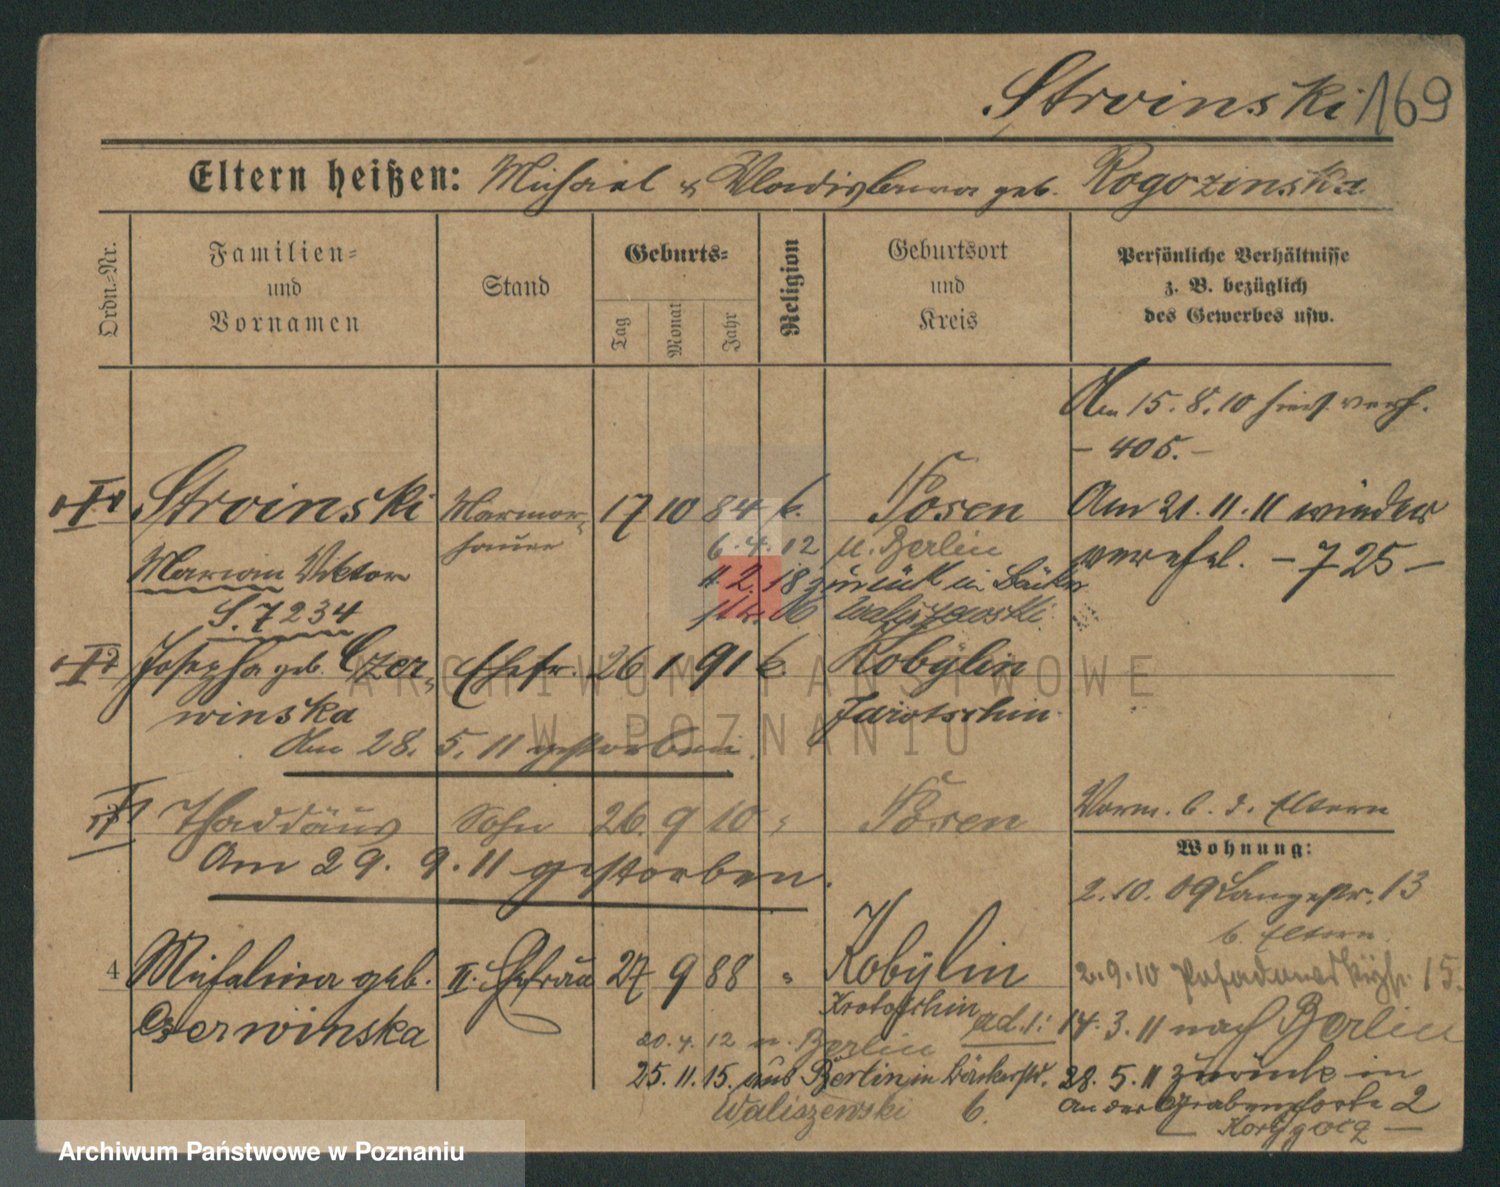 Stroinski 169
Eltern heißen: Michael & Wladislawa geb. Rogozinska
Ordn.-Nr.
Familien-
und
Vornamen
Stand
Geburts-
Tag
Monat
Jahr
Religion
Geburtsort
und
Kreis
Persönliche Verhältnisse
z. B. bezüglich
des Gewerbes usw.
Am 15.8.10 hier verh.
- 405. -
Stroinski Marmor- 17 10 84 k. Posen Am 21.11.11 wieder
hauer
6.4.12 n. Berlin
verehel. - 725 -
Marian Viktor
11.2.18 zurück in Bäcker
S. 7234
str. 16 Waliszewski
Josepha geb. Czer- Ehefr. 26 1 91 k. Kobylin
winska
Jarotschin
Am 28. 5. 11 gestorben.
ARCHIWUM PAŃSTWOWE
W POZNANIU
Vorm. b. d. Eltern
Thaddäus Sohn 26 9 10 " Posen
Am 29. 9. 11 gestorben.
Wohnung:
2.10.09 Langestr. 13
b. Eltern
4 Michalina geb. II. Ehefrau 27 9 88 " Kobylin
2.9.10 15.
Czerwinska
Krotoschin
ad.1: 14.3.11 nach Berlin
20.4.12 n. Berlin
25.11.15. aus Berlin in Bäckerstr.
28.5.11 zurück in
Waliszewski b.
An der Grabenpforte 2
Archiwum Państwowe w Poznaniu